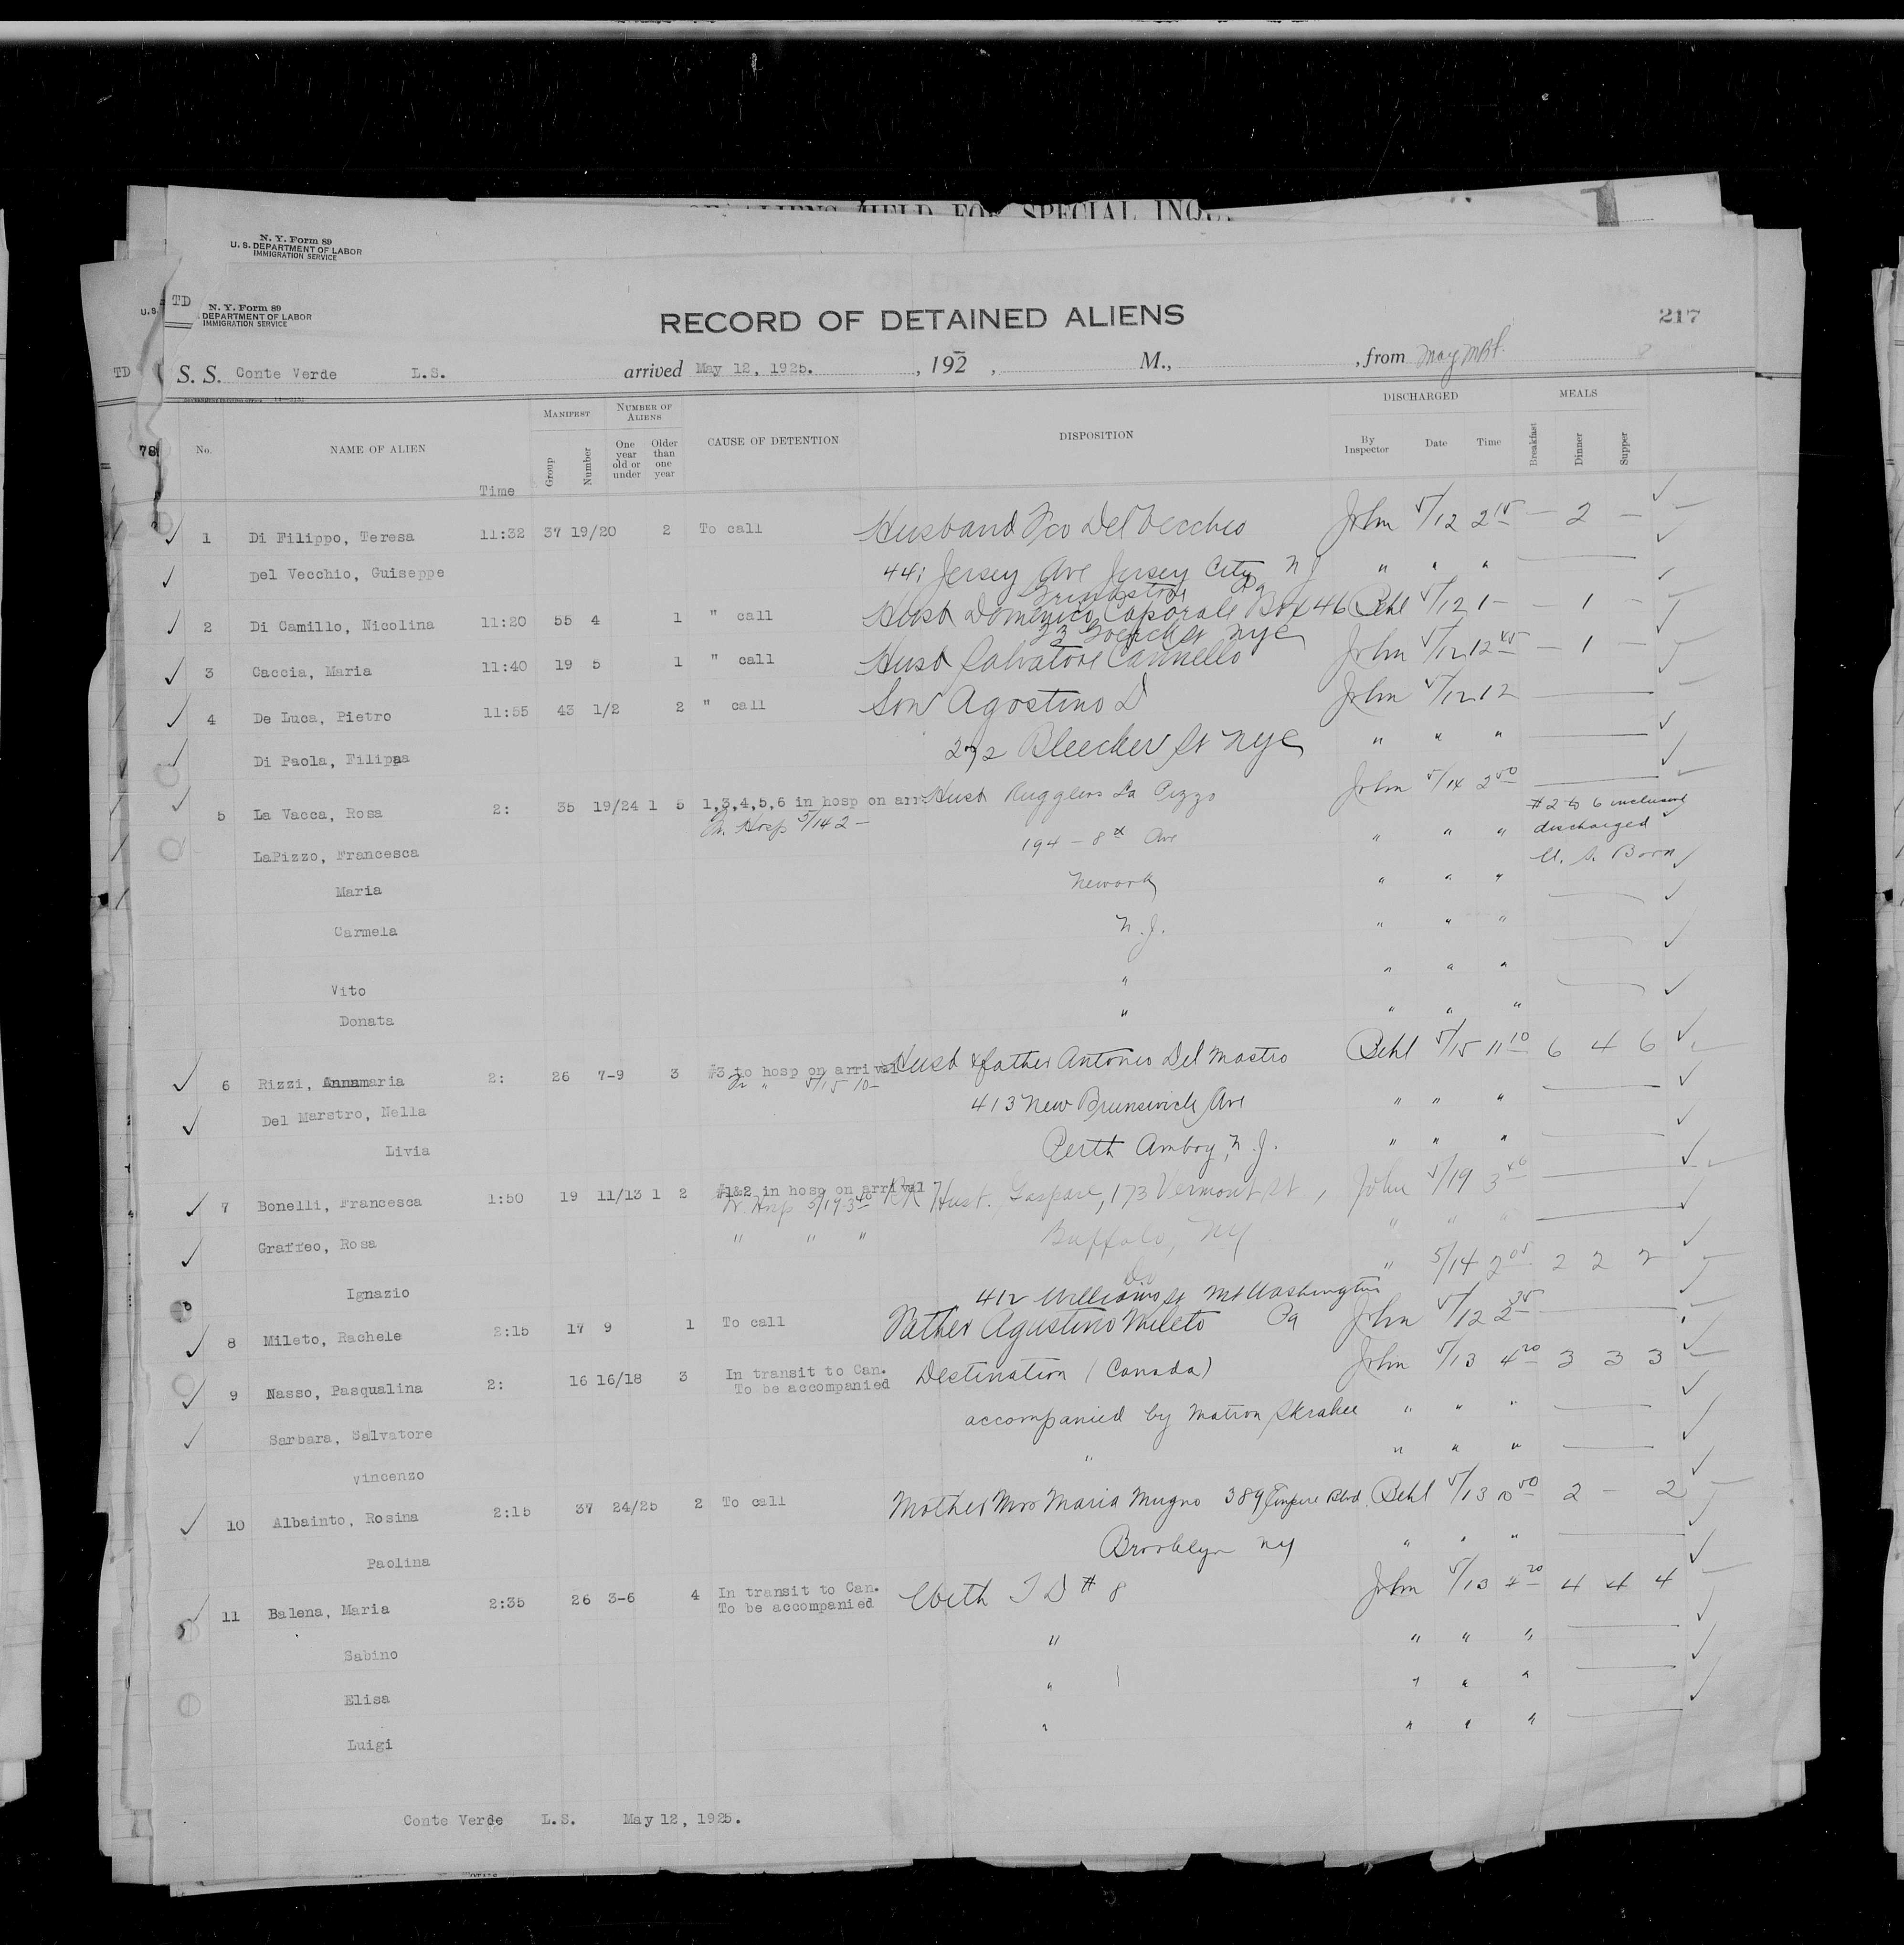 OF ALIENS HELD FOR SPECIAL INQU
N. Y. Form 89
U. S. DEPARTMENT OF LABOR
IMMIGRATION SERVICE
TD
N. Y. Form 89
U.S. DEPARTMENT OF LABOR
IMMIGRATION SERVICE
RECORD OF DETAINED ALIENS
217
TD
S. S. Conte Verde L.S. arrived May 12, 1925. , 192 , M., , from
DISCHARGED MEALS
MANIFEST NUMBER OF ALIENS
78 No. NAME OF ALIEN Time Group Number One year old or under Older than one year CAUSE OF DETENTION DISPOSITION By Inspector Date Time Breakfast Dinner Supper
1 Di Filippo, Teresa 11:32 37 19/20 2 To call Husband Fco Del Vecchio John 5/12 2 15 — 2 —
Del Vecchio, Guiseppe 441 Jersey Ave Jersey City N J " " "
2 Di Camillo, Nicolina 11:20 55 4 1 " call Husb Domenico Caporale Box 46 Behl 5/12 1 — — 1 —
3 Caccia, Maria 11:40 19 5 1 " call Husb Salvatore Cannello John 5/12 12 45 — 1 —
4 De Luca, Pietro 11:55 43 1/2 2 " call Son Agostino D John 5/12 12
Di Paola, Filippa 272 Bleecker St NYC " " "
5 La Vacca, Rosa 2: 35 19/24 1 5 1,3,4,5,6 in hosp on arr Husb Ruggiero La Pizzo John 5/14 2 50
Fr. Hosp 5/14 2 — #2 to 6 inclusive
LaPizzo, Francesca 194 - 8th Ave " " " discharged
U. S. Born
Maria Newark " " "
Carmela N. J. " " "
Vito " " " "
Donata " " " "
6 Rizzi, Annamaria 2: 26 7-9 3 #3 to hosp on arrival Husb & father Antonio Del Mastro Behl 5/15 11 10 6 4 6
Fr " 5/15 10 —
Del Marstro, Nella 413 New Brunswick Ave " " "
Livia Perth Amboy, N. J. " " "
7 Bonelli, Francesca 1:50 19 11/13 1 2 #1&2 in hosp on arrival Husb. Gaspare, 173 Vermont St , John 5/19 3 40
Fr. Hosp 5/19 3 40
Graffeo, Rosa " " " Buffalo, NY " " "
Ignazio Do " 5/14 2 05 2 2 2
412 Williams St Mt Washington
8 Mileto, Rachele 2:15 17 9 1 To call Father Agustino Mileto Pa John 5/12 2 35
9 Nasso, Pasqualina 2: 16 16/18 3 In transit to Can. Destination (Canada) John 5/13 4 20 3 3 3
To be accompanied
Sarbara, Salvatore accompanied by Matron " " "
Vincenzo " " " "
10 Albainto, Rosina 2:15 37 24/25 2 To call Mother Mrs Maria Mugno 389 Empire Blvd. Behl 5/13 10 50 2 — 2
Paolina Brooklyn NY " " "
11 Balena, Maria 2:35 26 3-6 4 In transit to Can. With T D # 8 John 5/13 4 20 4 4 4
To be accompanied
Sabino " " " "
Elisa " " " "
Luigi " " " "
Conte Verde L.S. May 12, 1925.